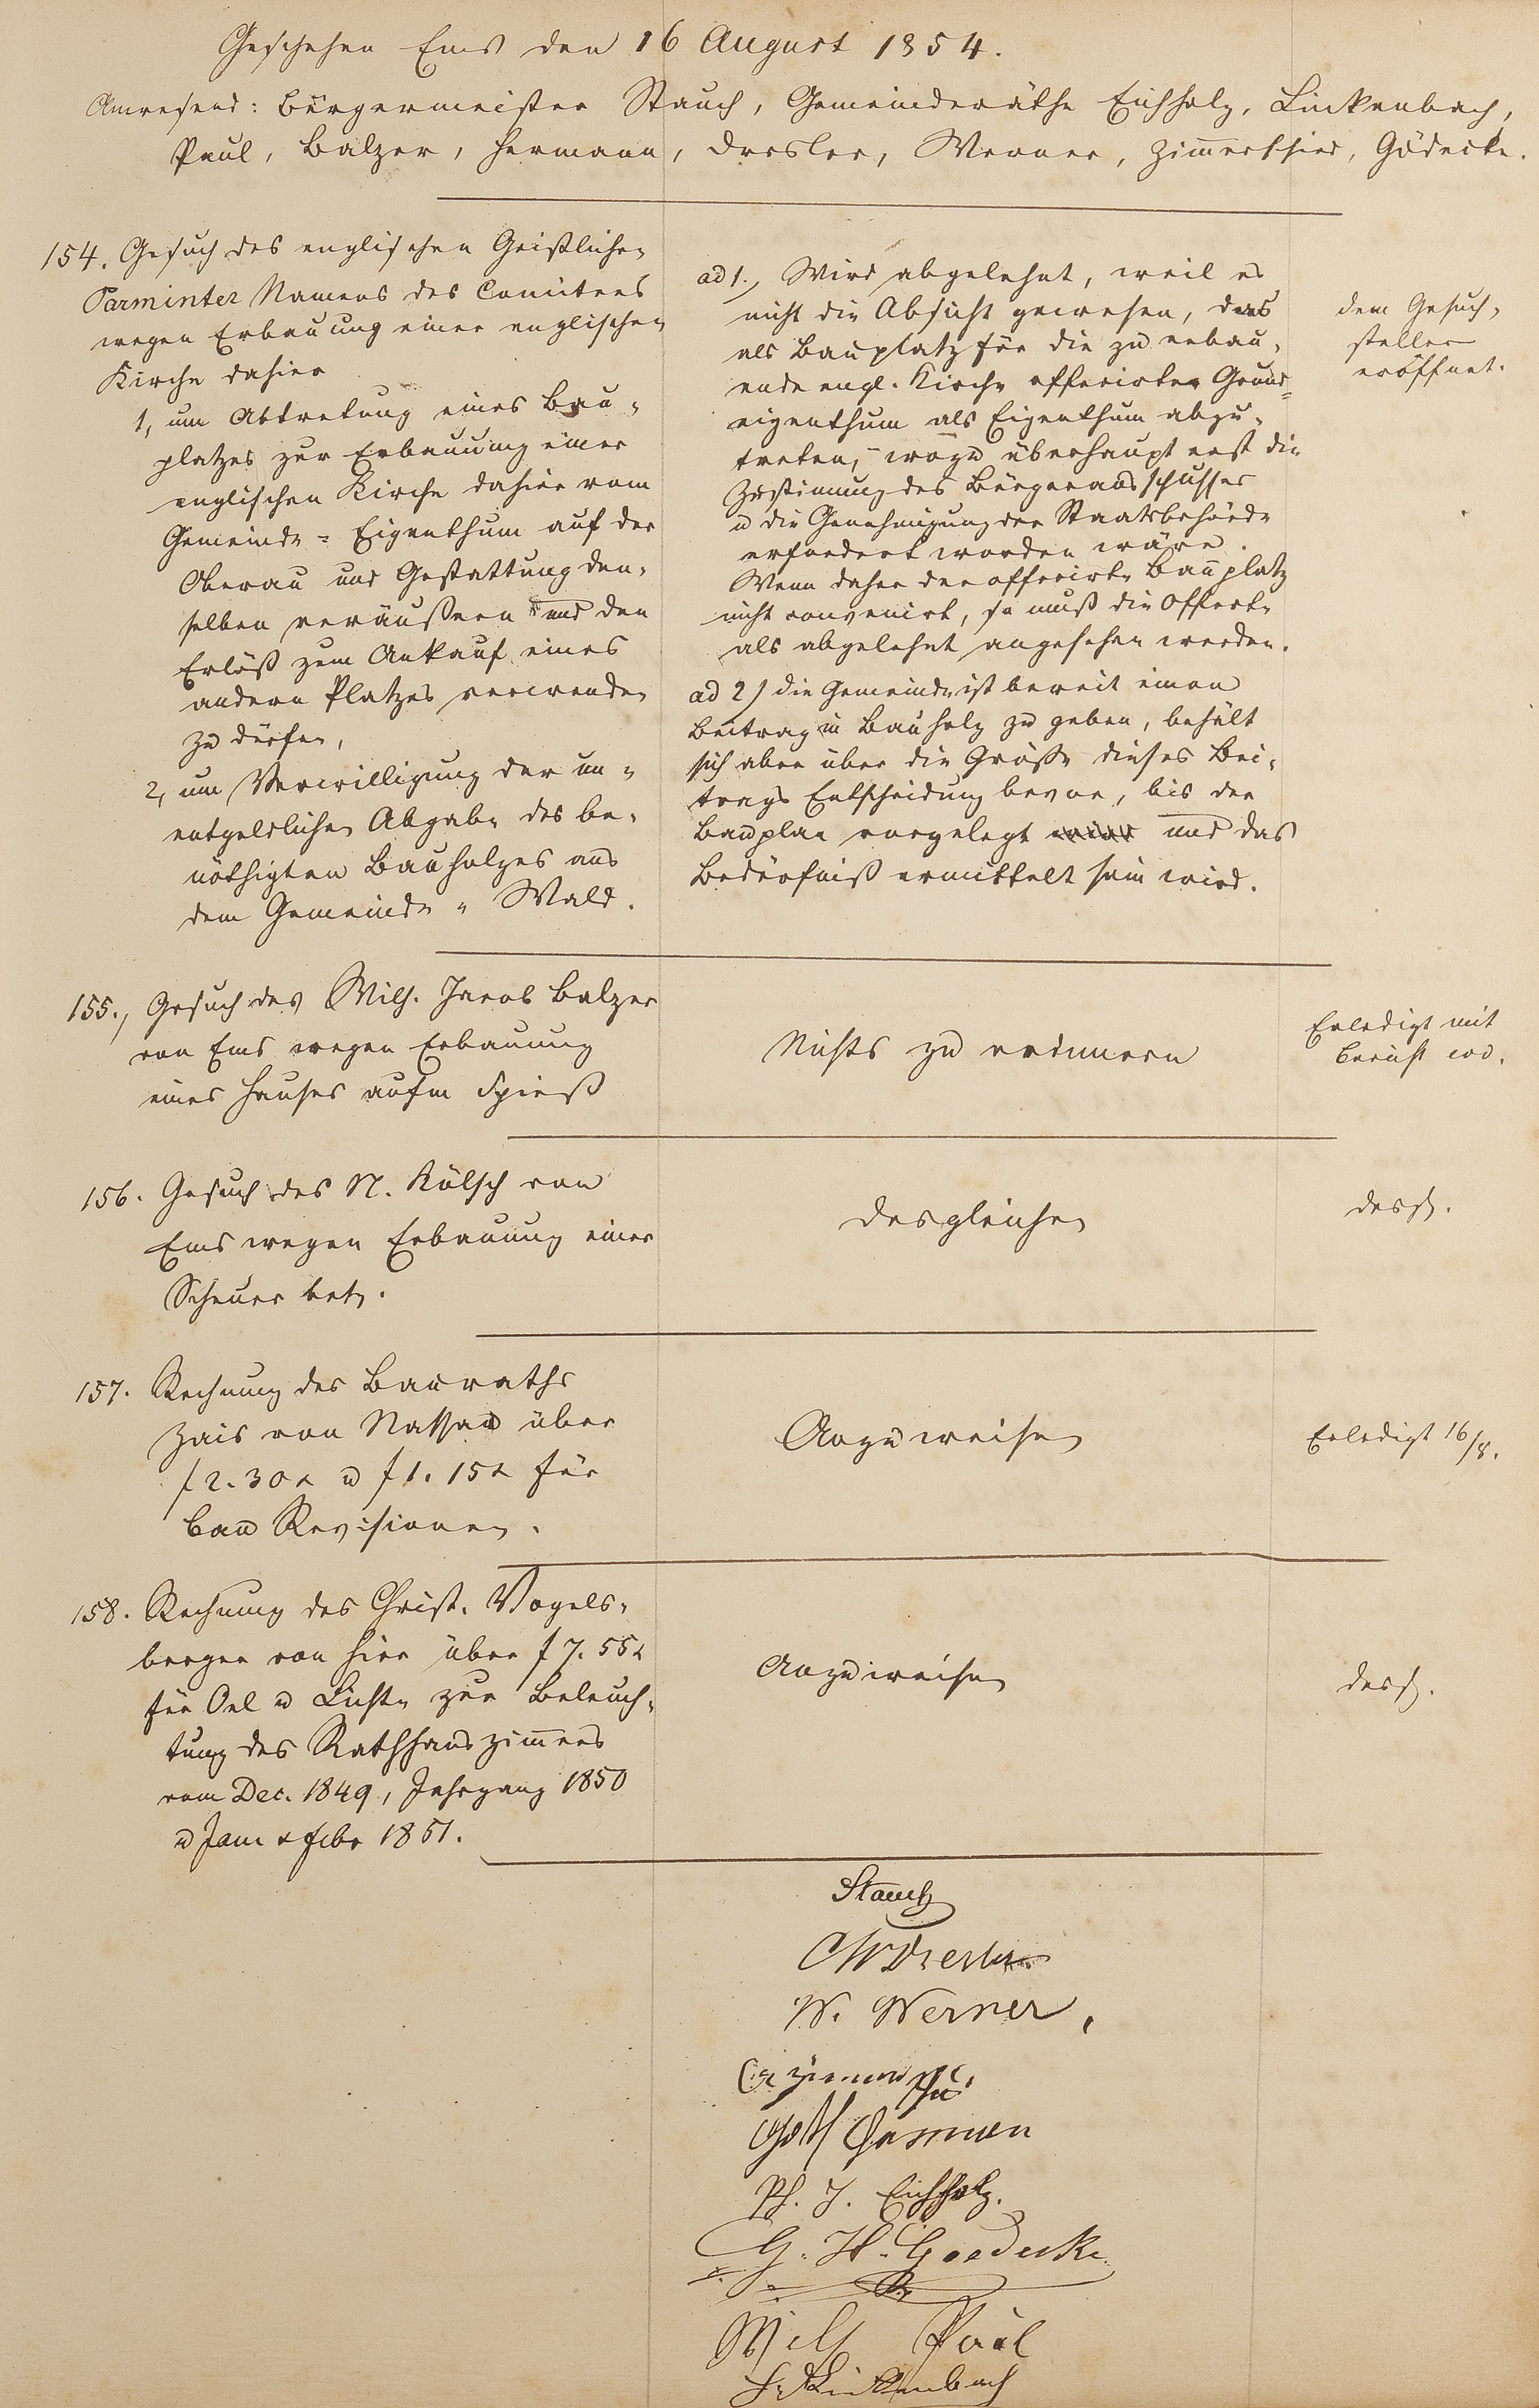 Geschehen Ems den 16 August 1854.
Anwesend: Bürgermeister Stauch, Gemeinderäthe Eichholz, Linkenbach,
Paul, Balzer, Hermann, Dresler, Werner, Zim̅erschied, Gödecke.
154. Gesuch des englischen Geistlichen
Parminter Namens des Comitees
wegen Erbauung einer englischen
Kirche dahier
1, um Abtretung eines Bau-
platzes zur Erbauung einer
englischen Kirche dahier vom
Gemeinde-Eigenthum auf der
Oberau und Gestattung den-
selben veräußern und den
Erlöß zum Ankauf eines
andern Platzes verwenden
zu dürfen,
2, um Verwilligung der un-
entgeldlichen Abgabe des be-
nöthigten Bauholzes aus
dem Gemeinde-Wald.
ad 1., Wird abgelehnt, weil es
nicht die Absicht gewesen, das
als Bauplatz für die zu erbau-
ende engl. Kirche offerirte Grund-
eigenthum als Eigenthum abzu-
treten, wozu überhaupt erst die
Zustimung des Bürgerausschusses
u die Genehmigung der Staatsbehörde
erfordert worden wäre.
Wenn daher der offerirte Bauplatz
nicht convenirt, so muß die Offerte
als abgelehnt angesehen werden.
ad 2) die Gemeinde ist bereit einen
Beitrag in Bauholz zu geben, behält
sich aber über die Größe dieses Bei-
trags Entscheidung bevor, bis der
Bauplan vorgelegt und das
Bedürfniß ermittelt sein wird.
dem Gesuch-
steller
eröffnet.
155., Gesuch des Wilh. Jacob Balzer
von Ems wegen Erbauung
eines Hauses aufm Spieß
Nichts zu erinnern
Erledigt mit
Bericht eod.
156. Gesuch des N. Kölsch von
Ems wegen Erbauung einer
Scheuer betr.
desgleichen
desgl.
157. Rechnung des Bauraths
Zais von Nassau über
f 2. 30 x u f 1. 15 x für
Bau Revisionen.
Anzuweisen
Erledigt 16/8.
158. Rechnung des Christ. Vogels-
berger von hier über f 7. 55 x
für Oel u Lichte zur Beleuch-
tung des Rathhauszim̅ers
vom Dec. 1849, Jahrgang 1850
u Janr & Febr 1851.
Anzuweisen
desgl.
Stauch
CW Dresler
W. Werner,
Gotth Hermann
Ph. J. Eichholz.
G. H. Goedecke
Wilh Paul
Linkenbach